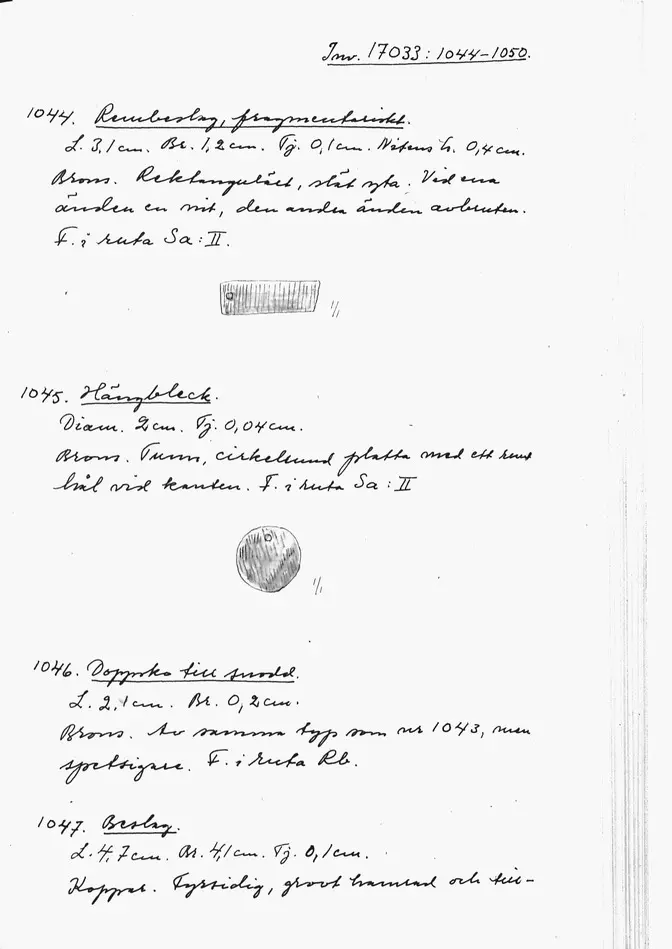 Inv. 17033:1044-1050.
1044. Rembeslag, fragmentariskt.
L. 3,1cm. Br. 1,2cm. Tj. 0,1cm. Nitens h. 0,4cm.
Brons. Rektangulärt, slät yta. Vid ena
änden en nit, den andra änden avbruten.
F. i ruta Sa:II.
1/1
1045. Hängbleck.
Diam. 2cm. Tj. 0,04cm.
Brons. Tunn, cirkelrund platta med ett runt
hål vid kanten. F. i ruta Sa:II
1/1
1046. Doppsko till snodd.
L. 2,1cm. Br. 0,2cm.
Brons. Av samma typ som nr 1043, men
spetsigare. F. i ruta Rb.
1047. Beslag.
L. 4,7cm. Br. 4,1cm. Tj. 0,1cm.
Koppar. Fyrsidig, grovt hamrad och till-